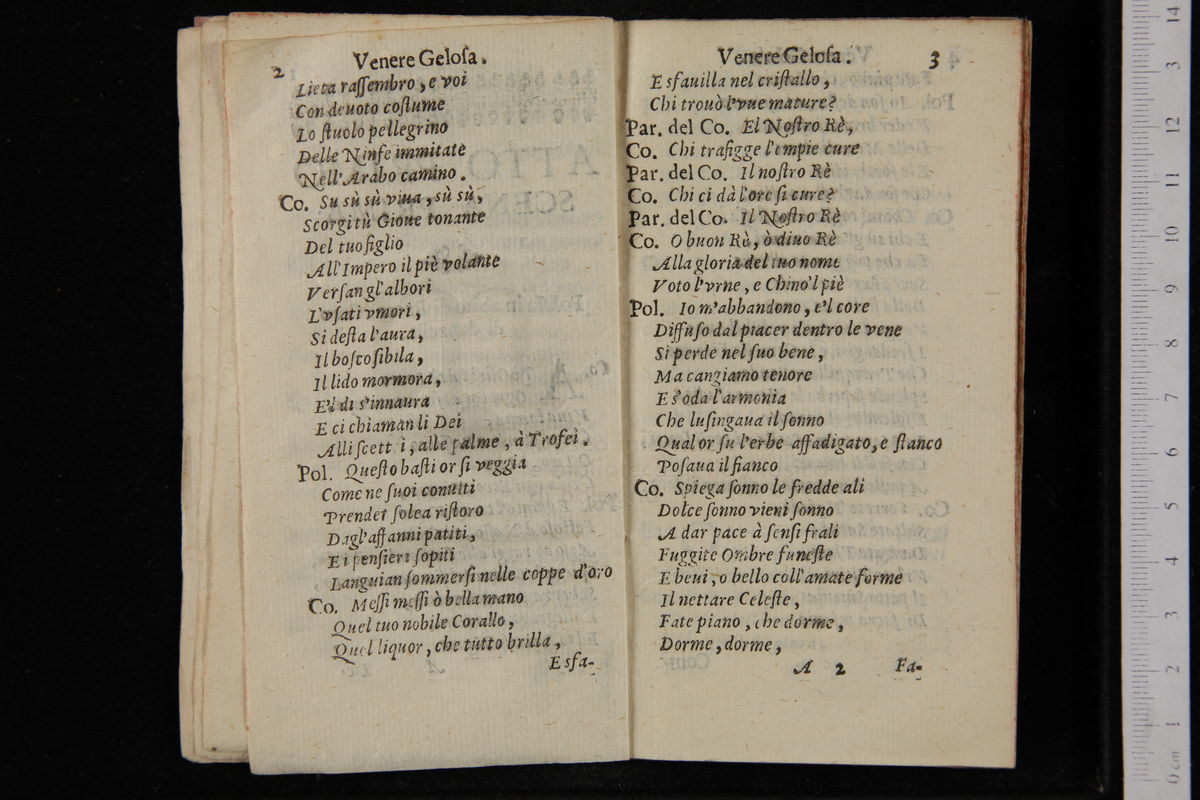 2 Venere Geloſa.
Lieta raſſembro, e voi
Con deuoto coſtume
Lo ſtuolo pellegrino
Delle Ninfe immitate
Nell'Arabo camino.
Co. Su sù sù viua, sù sù,
Scorgi tù Gioue tonante
Del tuo figlio
All'Impero il piè volante
Verſan gl'albori
L'vſati vmori,
Si deſta l'aura,
Il boſco ſibila,
Il lido mormora,
E'l dì s'innaura
E ci chiaman li Dei
Alli ſcett i, alle palme, à Trofei.
Pol. Queſto baſti or ſi veggia
Come ne ſuoi conuiti
Prender ſolea riſtoro
Dagl'affanni patiti,
E i penſieri ſopiti
Languian ſommerſi nelle coppe d'oro
Co. Meſſi meſſi ò bella mano
Quel tuo nobile Corallo,
Quel liquor, che tutto brilla,
Esfa-
Venere Geloſa. 3
E sfauilla nel criſtallo,
Chi trouò l'vue mature?
Par. del Co. El Noſtro Rè,
Co. Chi trafigge l'empie cure
Par. del Co. Il noſtro Rè
Co. Chi ci dà l'ore ſicure?
Par. del Co. Il Noſtro Rè
Co. O buon Rè, ò diuo Rè
Alla gloria del tuo nome
Voto l'vrne, e Chino'l piè
Pol. Io m'abbandono, e'l core
Diffuſo dal piacer dentro le vene
Si perde nel ſuo bene,
Ma cangiamo tenore
E s'oda l'armonia
Che luſingaua il ſonno
Qual or ſu l'erbe affadigato, e ſtanco
Poſaua il fianco
Co. Spiega ſonno le fredde ali
Dolce ſonno vieni ſonno
A dar pace à ſenſi frali
Fuggite Ombre funeſte
E beui, o bello coll'amate forme
Il nettare Celeſte,
Fate piano, che dorme,
Dorme, dorme,
A 2 Fa-